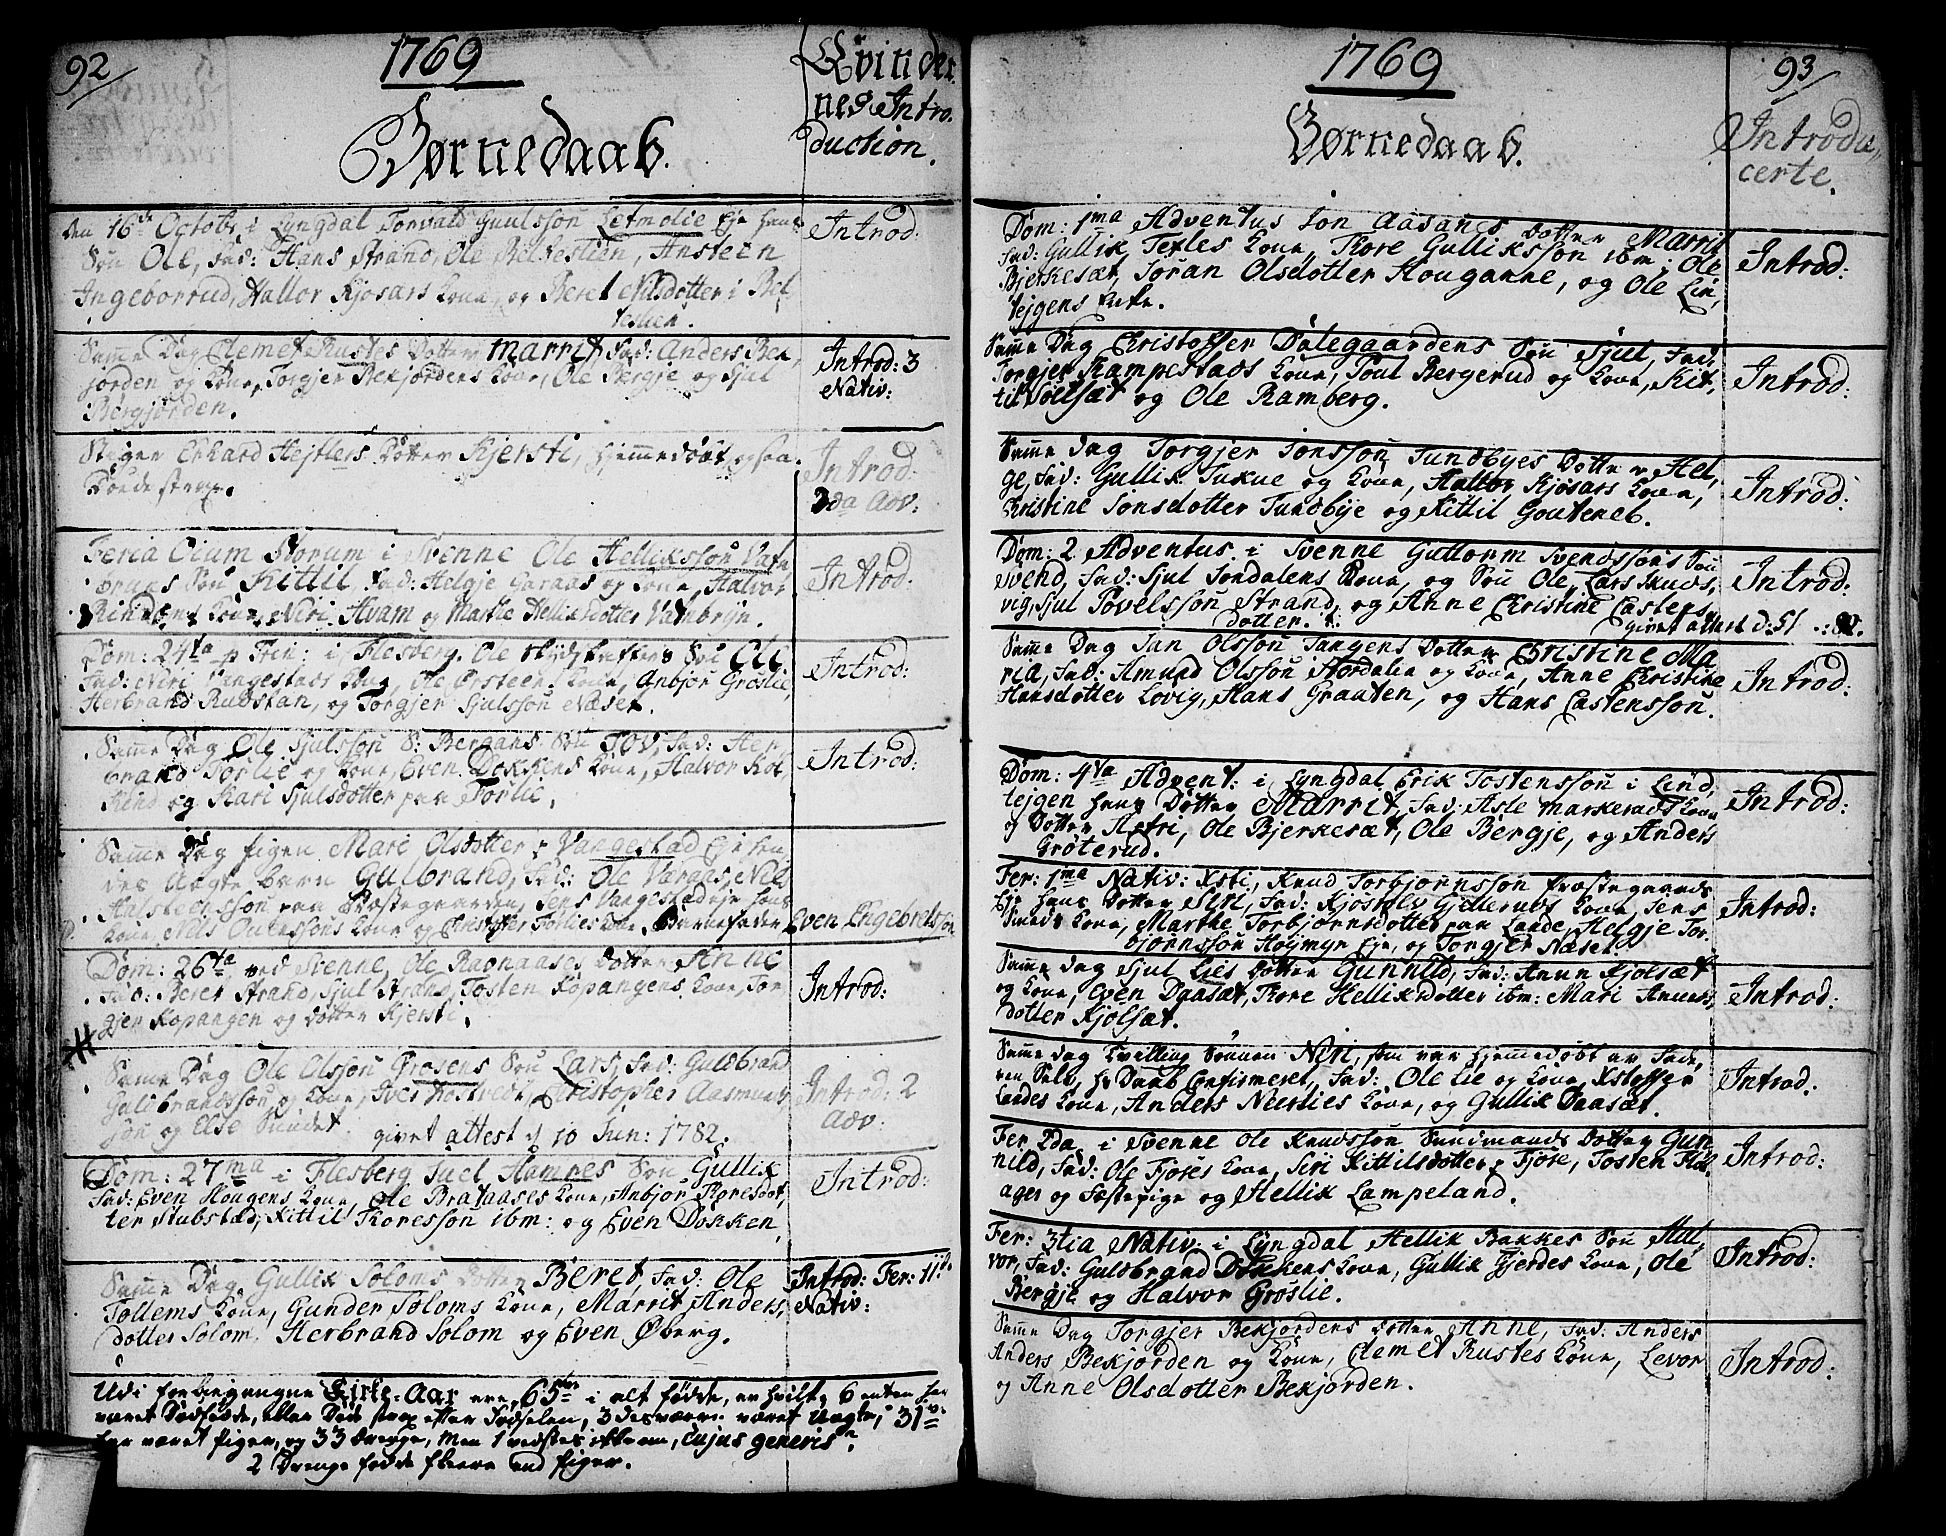 92
1769
Børnedaab.
Qvinder,
nes Intro.
duction.
den 16de Octobr i Lyngdal Torvald Guulssøn Letmolie Eje hans
Søn Ole, fad: Hans Strand, Ole Belkestien, Ansteen
Ingeborrud, Hallor Kjøsars Kone, og Beret Nilsdotter i Bel,
kestien.
Introd:
Samme Dag Clemet Rustes Dotter Marrit fad: Anders Bek,
jorden og Kone, Torgjer Bekjordens Kone, Ole Bergje og Sjul
Bergjorden.
Introd: 3
Nativ:
Stiger Erhard Hejtlers Dotter Kjersti, hjemmedøbt og saa
døde strax.
Introd:
2da Adv:
Feria Oium Storum i Svenne Ole Helliksson
Søn Kittil fad: Helgje Garaas og Kone, Halvor
Rindens Kone, Neri Hvam og Marthe Helliksdotter Vambrun.
Introd:
Dom: 24ta p Trin: i Flesberg. Ole Søn Ole.
fad: Neri Vangestads Ole Ørsteens Kone, Anbjor Groslie,
Herbrand Rudstan, og Torgjer Sjulsson Næset.
Introd:
Samme Dag Ole Sjulsson S: Bergans Søn Tov, fad: Her,
brand Torlie og Kone, Even Dokkens Kone, Halvor Kol,
Kind og Kari Sjulsdotter paa Torlie.
Introd:
Samme Dag pigen Mari Olsdotter Vangestad Eje hen,
des Uægte barn Gulbrand, fad: Ole Varaas, Nils
Halsteensson paa Præstegaarden, Jens Vangestadeje hans
Kone, Nils Kone og Christopher Torlies Barnefader Even Engebretson
Dom: 26ta ved Svenne, Ole Ragnaases Dotter Anne
fad: Beret Strand, Sjul Strand, Tosten Kopangens Kone, Tor
gjer Kopangen og dotter Kjersti.
Introd:
Samme Dag Ole Olsson Grosens Søn Lars, fad: Guldbrand
Guldbrandssøn og Kone, Christopher Aasmunds
søn og Else Sundet. givet attest d 10 Jun: 1782.
Introd: 2
Adv:
Dom: 27ma i Flesberg Juel Hamres Søn Gullik
fad: Even Hougens Kone, Ole Brataases Kone, Anbjor Thoresdot,
ter Stubstad, Kittil Thoresson ibm: og Even Dokken,
Introd:
Samme Dag Gullik Soloms Dotter Beret, fad: Ole
Tollems Kone, Gunder Soloms Kone, Marrit Anders,
dotter Solom. Herbrand Solom og Even Øberg.
Introd: Fer: 11da
Nativ:
Udi forbigangne Kirke-Aar ere 65ve i alt fødde, hvilke 6 enten har
været Dødfødde, eller døde strax efter Fødselen, 3 desværre været Uægte, 31 v
har været Piger, og 33 Drenge, men 1 vedstes ikke om, cujus generis
2 Drenge fødde fleere end Piger.
1769
93
Børnedaab.
Introdu,
certe.
Dom: 1ma Adventus Jon Aasans Dotter Marrit
fad: Gullik Texles Kone, Thore Gulliksson ibm: Ole
Bjerkesæt, Joran Olsdotter Houganne, og Ole Lin,
tejgens Enke.
Introd:
Samme Dag Christoffer Dalegaardens Søn Sjul, fad:
Torgjer Kampestads Kone, Poul Bergerud og Kone, Kit,
til Soelsæt og Ole Ramberg.
Introd:
Samme dag Torgjer Jonssøn Sundbyes Dotter Hel,
ge, fad: Gullik Tukue og Kone, Hallor Kjøsars Kone,
Christine Jonsdotter Sundbye og Kittil Gouteneb.
Introd:
Dom: 2 Adventus i Svenne Guttorm Svendssøns Søn
Svend, fad: Sjul Jondalens Kone, og Søn Ole, Lars Skuds,
vig, Sjul Povelssøn Strand, og Anne Christine Castens,
dotter. givet attest d: 51
Introd:
Samme Dag Jan Olsson Tangens Dotter Christine Ma
ria, fad: Amund Olsson Stordalen og Kone, Anne Christine
Hansdotter Lovig, Hans Graaten, og Hans Castensson.
Introd:
Dom: 4ta Advent: i Lyngdal Erik Tostenssøn i Lind,
tejgen hans Dotter Marrit, fad: Asle Markeruds Kone
og Dotter Astri, Ole Bjerkesæt, Ole Bergje, og Anders
Grøterud.
Introd:
Fer: 1ma Nativ: Xsti, Knud Torbjornssøn Præstegaards
Eje hans Dotter Siri, fad: Kjostolv Gjelleruds Kone, Jens
Kone, Marthe Torbjornsdotter paa Lande, Helgje Tor,
bjornssøn Hojmyr Eje, og Torgjer Næset.
Introd:
Samme dag Sjul Lies Dotter Gunnild, fad: Anun Kjolsæt
og Kone, Even Daasæt, Thore Helliksdotter ibm: Mari Anuns,
dotter Kjolsæt.
Introd:
Samme dag Tvilling Sønnen Neri, som var hjemmedøbt av Fade,
ren Selv, hs Daab Confirmeret, fad: Ole Lie og Kone, Xstoffer
Landes Kone, Anders Neersties Kone, og Gullik Daasæt.
Introd.
Fer 2da i Svenne Ole Knudssøn Sandmands Dotter Gun
nild, fad: Ole Fjoses Kone, Siri Kittilsdotter Fjose, Tosten Hal
ager og Fæstepige og Hellik Lampeland.
Introd:
Fer: 3tia Nativ: i Lyngdal Hellik Bakkes Søn Hal,
vor, fad: Guldbrand Dokkens Kone, Gullik Fjerdes Kone, Ole
Bergje og Halvor Groslie.
Introd:
Samme Dag Torgjer Bekjordens Dotter Anne, fad: Anders
Anders Bekjorden og Kone, Clemet Rustes Kone, Levor
og Anne Olsdotter Bekjorden.
Introd: